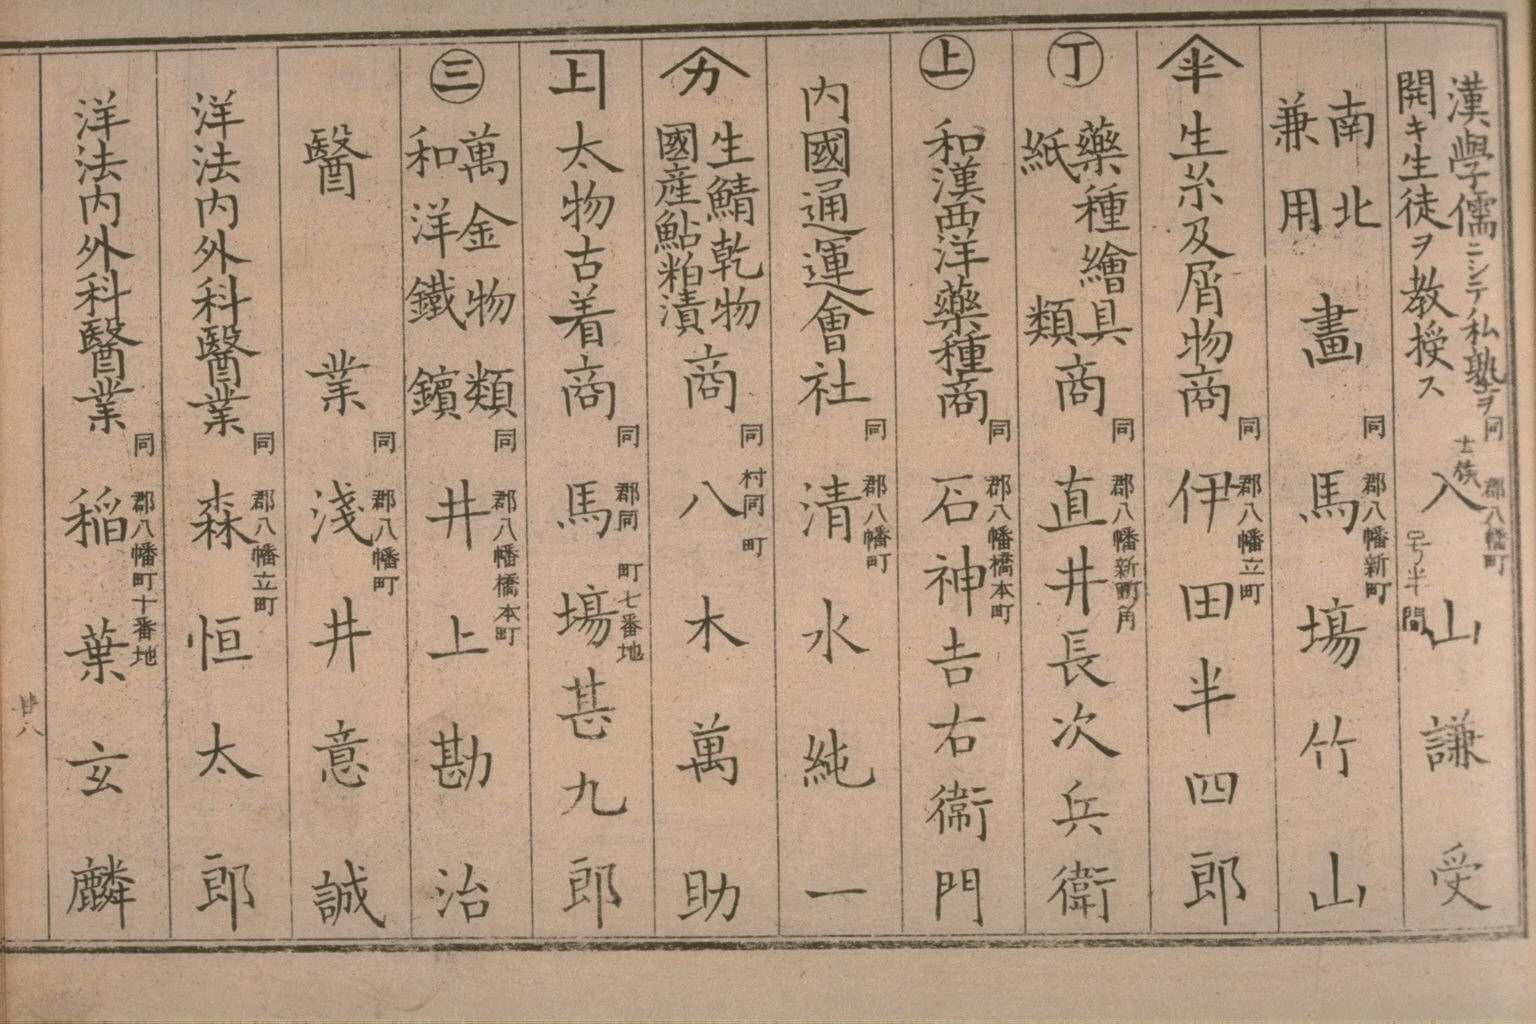 漢學儒ニシテ私塾ヲ
開キ生徒ヲ教授ス
同郡八幡町
士族
号半間
八山謙受
南北
兼用
畫
同郡八幡新町
馬塲竹山
半
生糸及屑物商
同郡八幡立町
伊田半四郎
丁
藥種繪具
紙類
商
同郡八幡新町角
直井長次兵衛
上
和漢西洋藥種商
同郡八幡橋本町
石神吉右衛門
内國通運會社
同郡八幡町
清水純一
カ
生鯖乾物
國産鮎粕漬
商
同村同町
八木萬助
上
太物古着商
同郡同町七番地
馬塲甚九郎
三
萬金物類
和洋鐵鑌
同郡八幡橋本町
井上勘治
醫業
同郡八幡町
淺井意誠
洋法内外科醫業
同郡八幡立町
森恒太郎
洋法内外科醫業
同郡八幡町十番地
稲葉玄麟
廿八